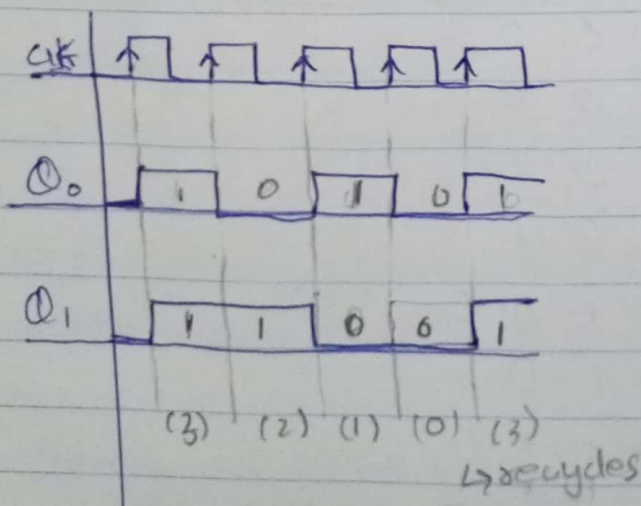 CLK
Q0 1 0 1 0 1
Q1 1 1 0 0 1
(3) (2) (1) (0) (3)
↳ recycles